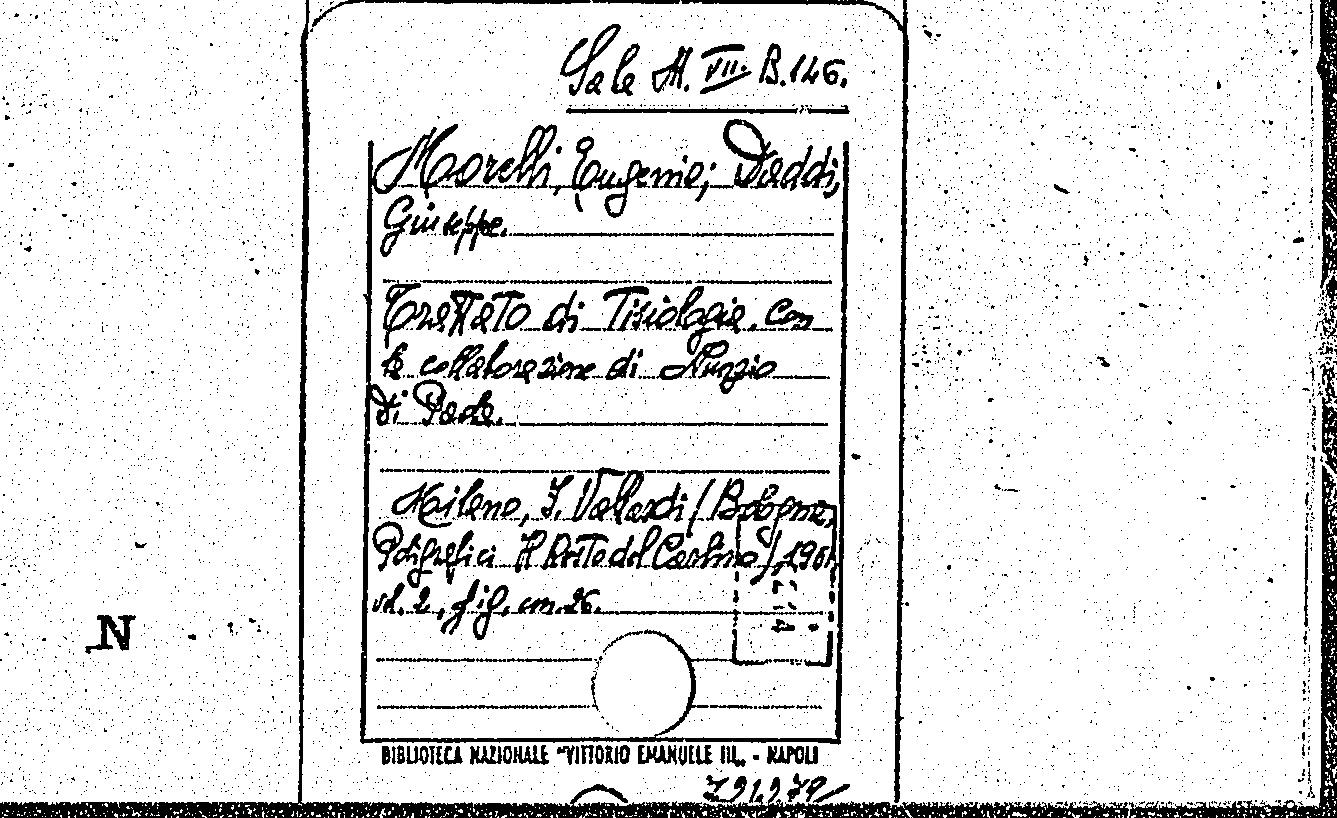 Sala M. VII. B. 146.
Morelli, Eugenio; Daddi,
Giuseppe.
Trattato di Tisiologia. Con
la collaborazione di Nunzio
Di Paola.
Milano, F. Vallardi / Bologna,
Poligrafici Il Resto del Carlino /, 195
vol. 2, fig. cm. 26.
N
BIBLIOTECA NAZIONALE "VITTORIO EMANUELE III" - NAPOLI